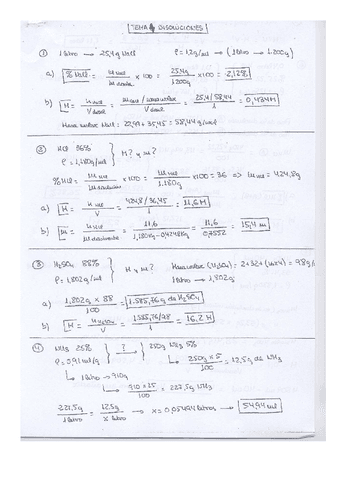 TEMA 4 DISOLUCIONES
① 1 litro → 25,4g NaCl    ρ = 1,2g/ml → (1 litro → 1.200g)
a) % NaCl = m NaCl / m disolu × 100 = 25,4g / 1200g × 100 = 2,12%
b) M = n NaCl / V disol = m NaCl / masa molar / V disol = 25,4/58,44 / 1 = 0,434M
Masa molar NaCl: 22,99 + 35,45 = 58,44 g/mol
② HCl 36% } M? y m?
ρ = 1,180g/ml
% HCl = m HCl / m disolución × 100 = m HCl / 1.180g × 100 = 36 ⇒ m HCl = 424,8g
a) M = n HCl / V = 424,8/36,45 / 1 = 11,6M
b) m = n HCl / m disolvente = 11,6 / 1,180Kg - 0,4248Kg = 11,6 / 0,7552 = 15,4 m
③ H₂SO₄ 88% } M y m?    Masa molar (H₂SO₄) = 2+32+(16×4) = 98g/
ρ = 1,802g/ml    1 litro → 1.802g
a) 1.802g × 88 / 100 = 1.585,76g de H₂SO₄
b) M = n H₂SO₄ / V = 1.585,76/98 / 1 = 16,2 M
④ NH₃ 25% } ? } 250g NH₃ 5%
ρ = 0,91g/ml    → 250g × 5 / 100 = 12,5g de NH₃
→ 1 litro → 910g
→ 910 × 25 / 100 = 227,5g NH₃
227,5g / 1 litro = 12,5g / x litro → x = 0,05494 litros → 54,94 ml